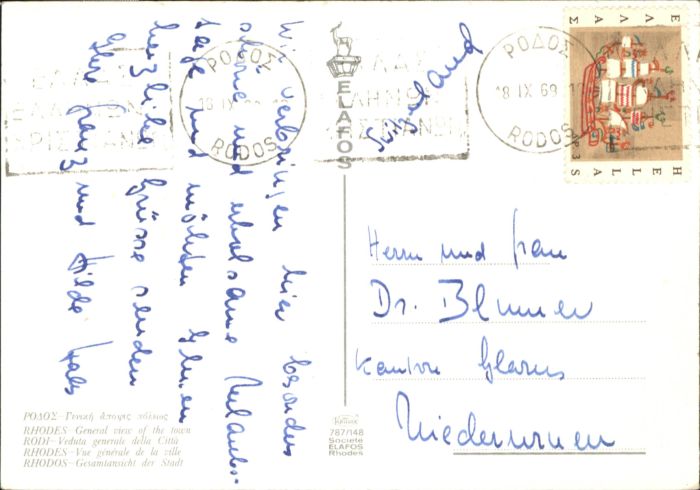 Wir verbringen hier besonders
schöne und erholsame Urlaubs-
tage und möchten Ihnen
herzliche Grüsse senden
Ihre Franz und Hilde
Switzerland
Herrn und Frau
Dr. Blumer
Kanton Glarus
Niederurnen
ΡΟΔΟΣ
18 IX 69
RODOS
ΡΟΔΟΣ
18 IX 69
RODOS
ΕΛΛΑΣ
ΕΛΛΗΝΩΝ
ΧΡΙΣΤΙΑΝΩΝ
ΕΛΛΑΣ
HELLAS
ELAFOS
ΡΟΔΟΣ—Γενική άποψις πόλεως
RHODES—General view of the town
RODI—Veduta generale della Città
RHODES—Vue générale de la ville
RHODOS—Gesamtansicht der Stadt
787/148
Société
ELAFOS
Rhodes